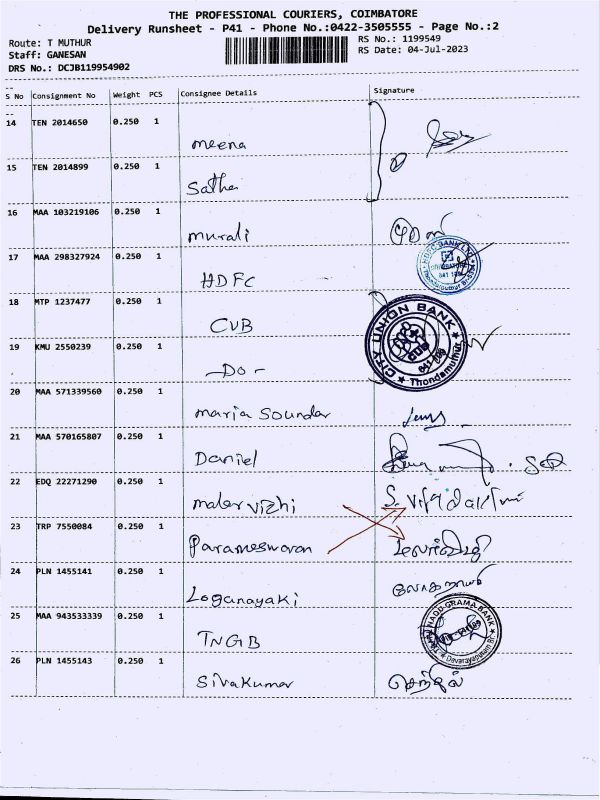 THE PROFESSIONAL COURIERS, COIMBATORE
Delivery Runsheet - P41 - Phone No.:0422-3505555 - Page No.:2
Route: T MUTHUR
RS No.: 1199549
Staff: GANESAN
RS Date: 04-Jul-2023
DRS No.: DCJB119954902
S No Consignment No Weight PCS Consignee Details Signature
14 TEN 2014650 0.250 1 Meena
15 TEN 2014899 0.250 1
16 MAA 103219106 0.250 1 Murali
17 MAA 298327924 0.250 1 HDFC
HDFC BANK LTD
18 MTP 1237477 0.250 1 CUB
CITY UNION BANK
CUB
Thondamuthur
19 KMU 2550239 0.250 1 -Do-
20 MAA 571339560 0.250 1 Maria Soundar
21 MAA 570165807 0.250 1 Daniel
22 EDQ 22271290 0.250 1 Malar vizhi
23 TRP 7550084 0.250 1 Parameswaran
24 PLN 1455141 0.250 1 Loganayaki
25 MAA 943533339 0.250 1 TNGB
TAMIL NADU GRAMA BANK
26 PLN 1455143 0.250 1 Sivakumar செந்தில்